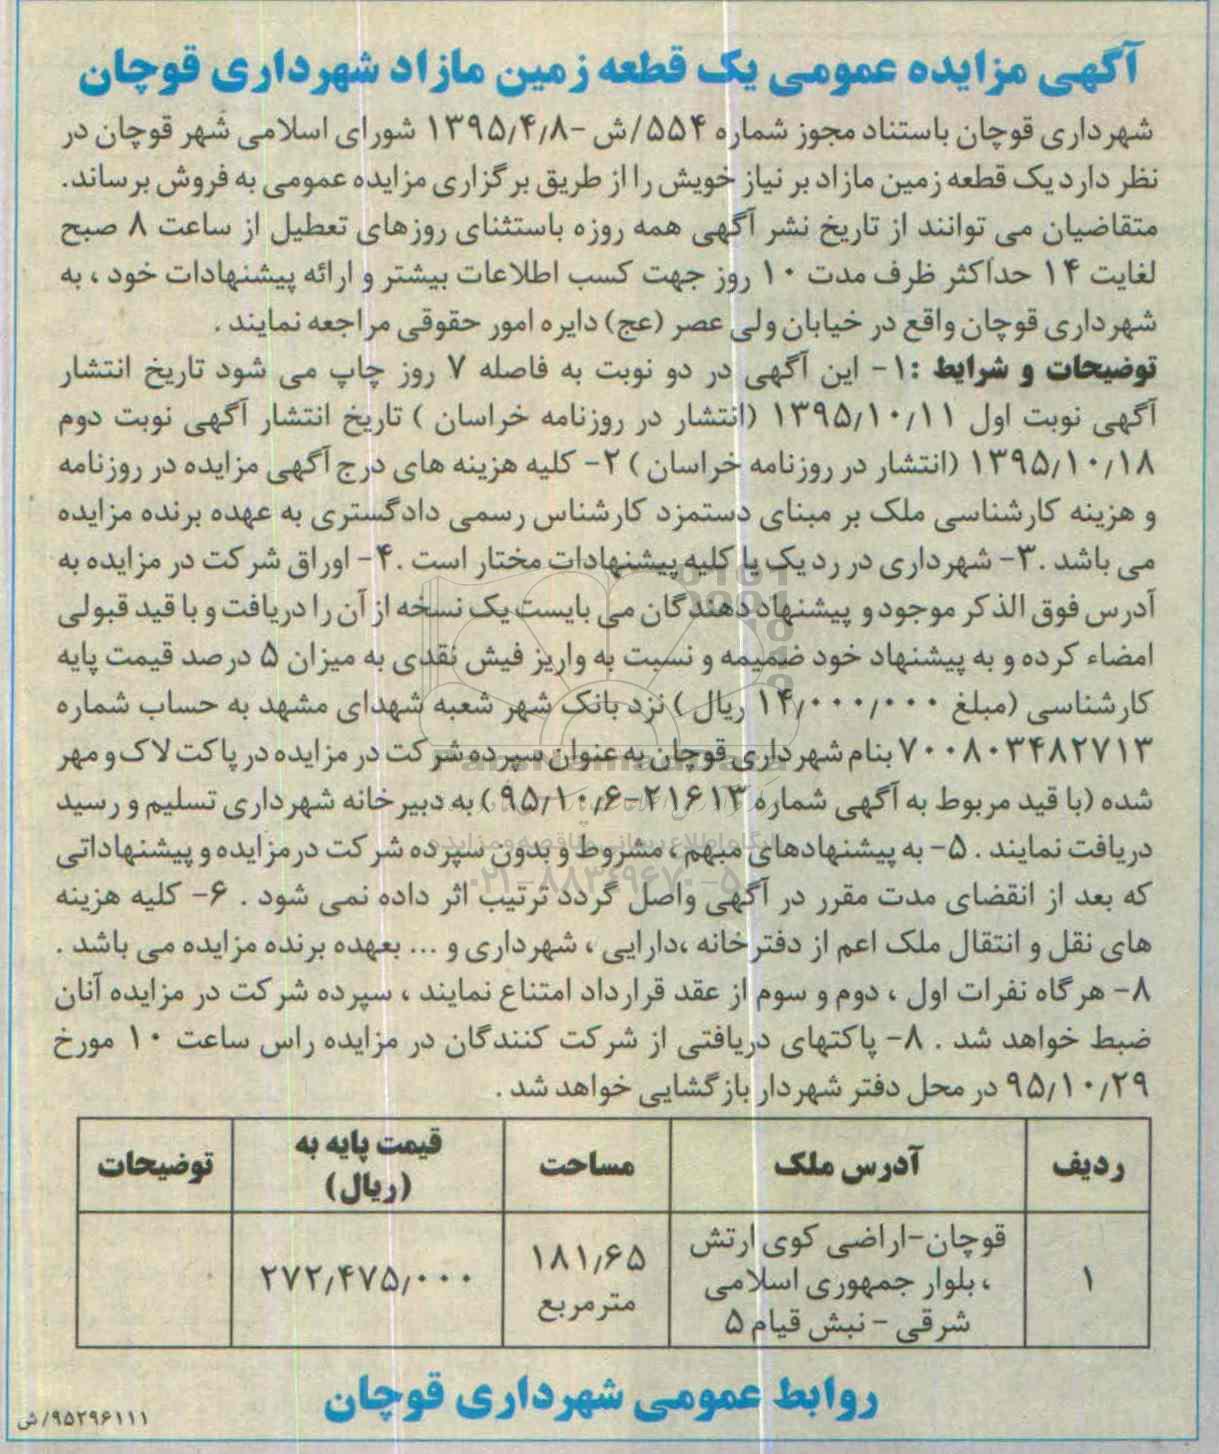 آگهی مزایده عمومی یک قطعه زمین مازاد شهرداری قوچان
شهرداری قوچان باستناد مجوز شماره ۵۵۴/ش -۱۳۹۵/۴/۸ شورای اسلامی شهر قوچان در
نظر دارد یک قطعه زمین مازاد بر نیاز خویش را از طریق برگزاری مزایده عمومی به فروش برساند.
متقاضیان می توانند از تاریخ نشر آگهی همه روزه باستثنای روزهای تعطیل از ساعت ۸ صبح
لغایت ۱۴ حداکثر ظرف مدت ۱۰ روز جهت کسب اطلاعات بیشتر و ارائه پیشنهادات خود ، به
شهرداری قوچان واقع در خیابان ولی عصر (عج) دایره امور حقوقی مراجعه نمایند .
توضیحات و شرایط :۱- این آگهی در دو نوبت به فاصله ۷ روز چاپ می شود تاریخ انتشار
آگهی نوبت اول ۱۳۹۵/۱۰/۱۱ (انتشار در روزنامه خراسان ) تاریخ انتشار آگهی نوبت دوم
۱۳۹۵/۱۰/۱۸ (انتشار در روزنامه خراسان ) ۲- کلیه هزینه های درج آگهی مزایده در روزنامه
و هزینه کارشناسی ملک بر مبنای دستمزد کارشناس رسمی دادگستری به عهده برنده مزایده
می باشد .۳- شهرداری در رد یک یا کلیه پیشنهادات مختار است .۴- اوراق شرکت در مزایده به
آدرس فوق الذکر موجود و پیشنهاد دهندگان می بایست یک نسخه از آن را دریافت و با قید قبولی
امضاء کرده و به پیشنهاد خود ضمیمه و نسبت به واریز فیش نقدی به میزان ۵ درصد قیمت پایه
کارشناسی (مبلغ ۱۴/۰۰۰/۰۰۰ ریال ) نزد بانک شهر شعبه شهدای مشهد به حساب شماره
۷۰۰۸۰۳۴۸۲۷۱۳ بنام شهرداری قوچان به عنوان سپرده شرکت در مزایده در پاکت لاک و مهر
شده (با قید مربوط به آگهی شماره ۲۱۶۱۳-۹۵/۱۰/۶ ) به دبیرخانه شهرداری تسلیم و رسید
دریافت نمایند . ۵- به پیشنهادهای مبهم ، مشروط و بدون سپرده شرکت درمزایده و پیشنهاداتی
که بعد از انقضای مدت مقرر در آگهی واصل گردد ترتیب اثر داده نمی شود . ۶- کلیه هزینه
های نقل و انتقال ملک اعم از دفترخانه ،دارایی ، شهرداری و ... بعهده برنده مزایده می باشد .
۸- هرگاه نفرات اول ، دوم و سوم از عقد قرارداد امتناع نمایند ، سپرده شرکت در مزایده آنان
ضبط خواهد شد . ۸- پاکتهای دریافتی از شرکت کنندگان در مزایده راس ساعت ۱۰ مورخ
۹۵/۱۰/۲۹ در محل دفتر شهردار بازگشایی خواهد شد .
ردیف آدرس ملک مساحت قیمت پایه به (ریال) توضیحات
۱ قوچان-اراضی کوی ارتش ۱۸۱/۶۵ ۲۷۲/۴۷۵/۰۰۰
، بلوار جمهوری اسلامی مترمربع
شرقی - نبش قیام ۵
روابط عمومی شهرداری قوچان
۹۵۲۹۶۱۱۱/ش